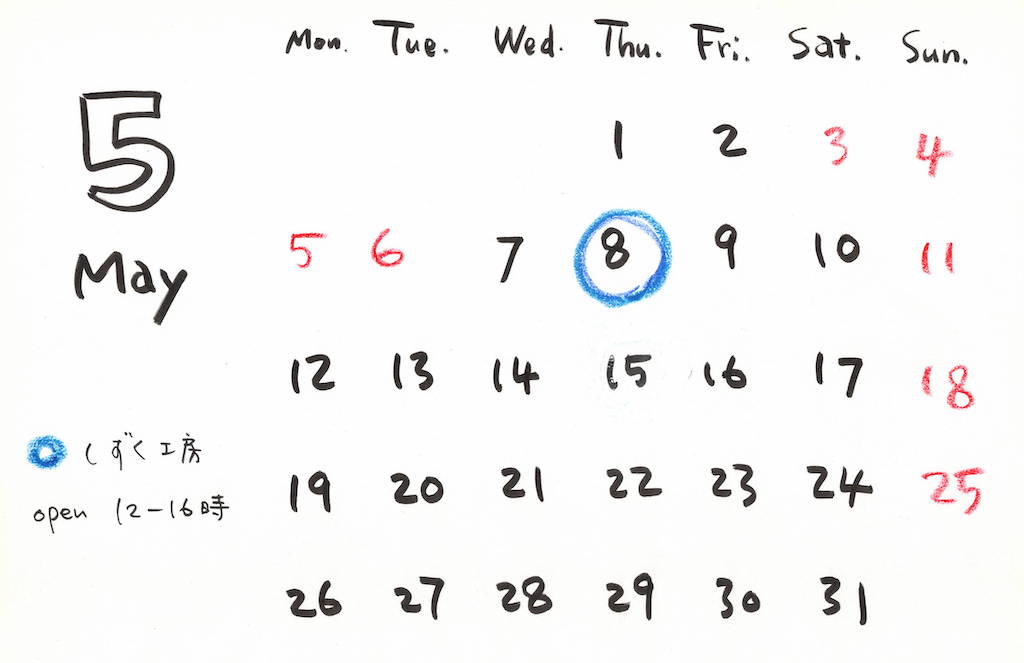 Mon. Tue. Wed. Thu. Fri. Sat. Sun.
5
May
1 2 3 4
5 6 7 8 9 10 11
12 13 14 15 16 17 18
19 20 21 22 23 24 25
26 27 28 29 30 31
しずく工房
open 12-16時